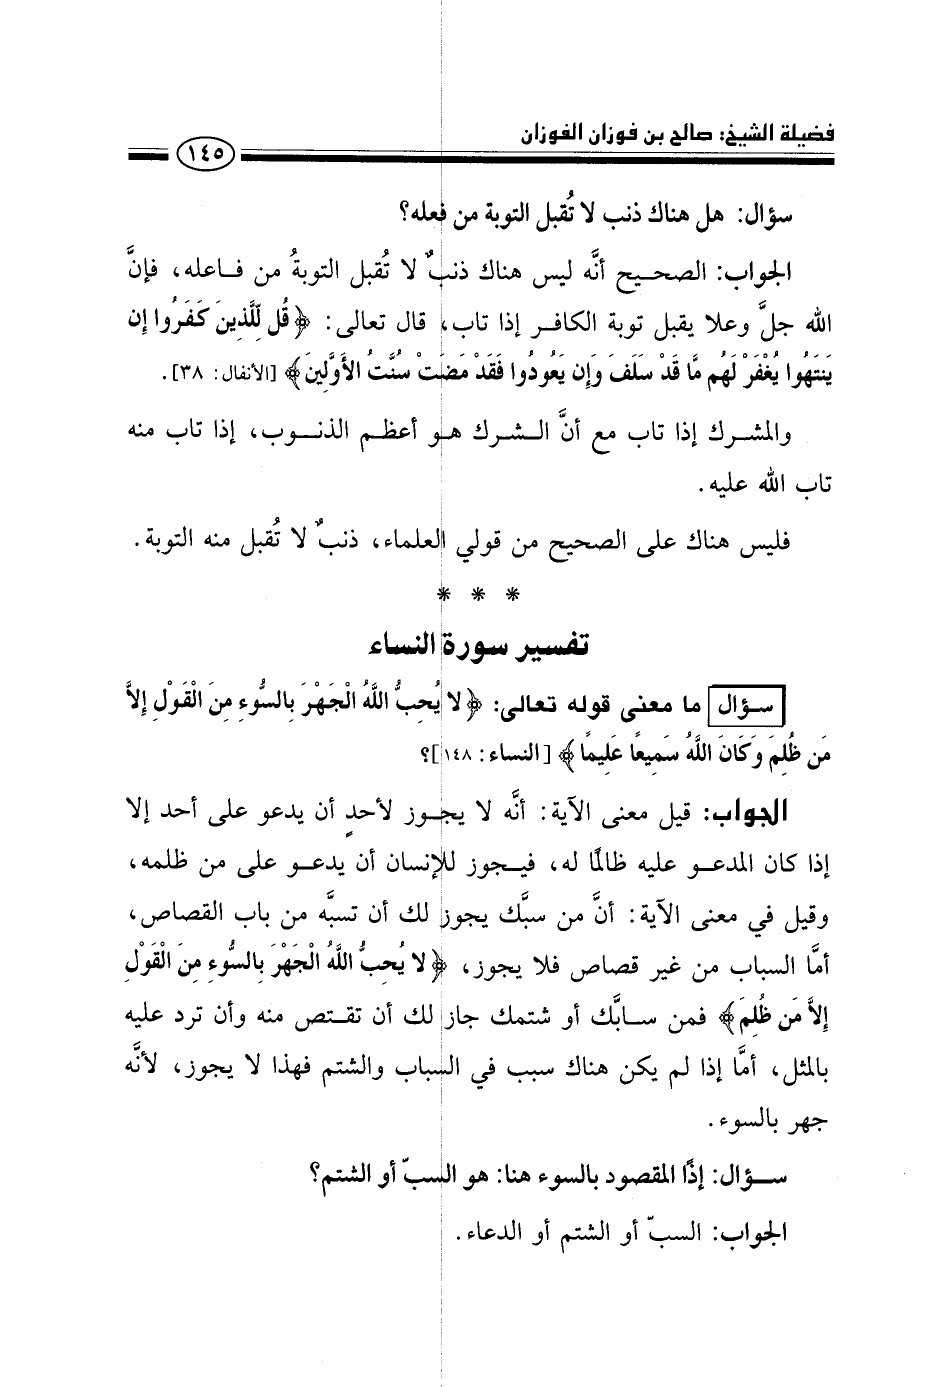 فضيلة الشيخ: صالح بن فوزان الفوزان
١٤٥
سؤال: هل هناك ذنب لا تُقبل التوبة من فعله؟
الجواب: الصحيح أنَّه ليس هناك ذنبٌ لا تُقبل التوبةُ من فاعله، فإنَّ
الله جلَّ وعلا يقبل توبة الكافر إذا تاب، قال تعالى: ﴿قُل لِّلَّذِينَ كَفَرُوا إِن
يَنتَهُوا يُغْفَرْ لَهُم مَّا قَدْ سَلَفَ وَإِن يَعُودُوا فَقَدْ مَضَتْ سُنَّتُ الأَوَّلِينَ﴾ [الأنفال: ٣٨].
والمشرك إذا تاب مع أنَّ الشرك هو أعظم الذنوب، إذا تاب منه
تاب الله عليه.
فليس هناك على الصحيح من قولي العلماء، ذنبٌ لا تُقبل منه التوبة.
* * *
تفسير سورة النساء
سؤال ما معنى قوله تعالى: ﴿لا يُحِبُّ اللَّهُ الْجَهْرَ بِالسُّوءِ مِنَ الْقَوْلِ إِلاَّ
مَن ظُلِمَ وَكَانَ اللَّهُ سَمِيعًا عَلِيمًا﴾ [النساء: ١٤٨]؟
الجواب: قيل معنى الآية: أنَّه لا يجوز لأحدٍ أن يدعو على أحد إلا
إذا كان المدعو عليه ظالمًا له، فيجوز للإنسان أن يدعو على من ظلمه،
وقيل في معنى الآية: أنَّ من سبَّك يجوز لك أن تسبَّه من باب القصاص،
أمَّا السباب من غير قصاص فلا يجوز، ﴿لا يُحِبُّ اللَّهُ الْجَهْرَ بِالسُّوءِ مِنَ الْقَوْلِ
إِلاَّ مَن ظُلِمَ﴾ فمن سابَّك أو شتمك جاز لك أن تقتص منه وأن ترد عليه
بالمثل، أمَّا إذا لم يكن هناك سبب في السباب والشتم فهذا لا يجوز، لأنَّه
جهر بالسوء.
سؤال: إذًا المقصود بالسوء هنا: هو السبّ أو الشتم؟
الجواب: السبّ أو الشتم أو الدعاء.